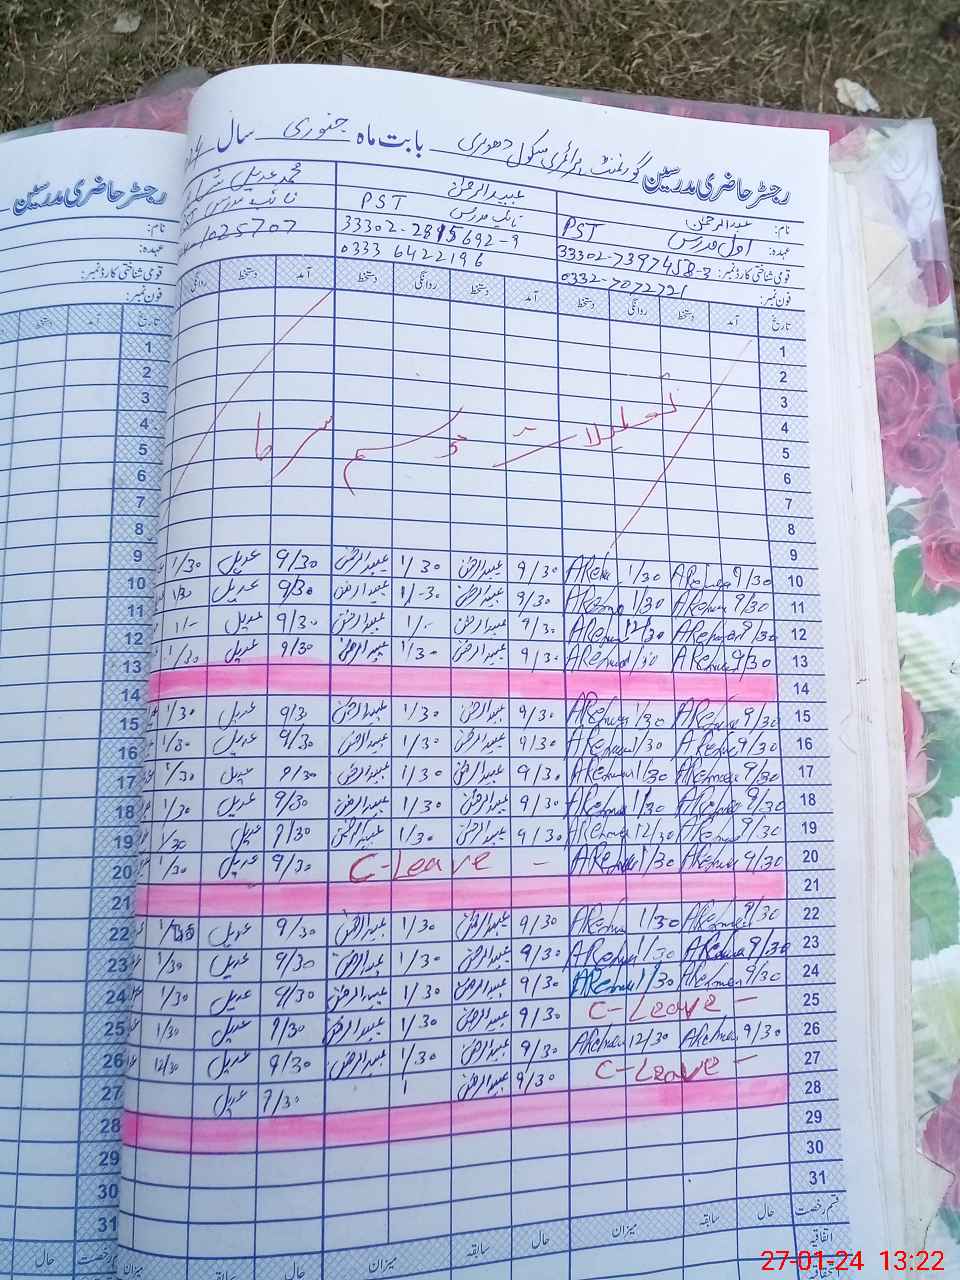 رجسٹر حاضری مدرسین گورنمنٹ پرائمری سکول دھوری بابت ماہ جنوری سال
نام: عبدالرحمٰن عبیدالرحمٰن محمد عدیل
عہدہ: اول مدرس PST نائب مدرس PST نائب مدرس
قومی شناختی کارڈ نمبر: 33302-7397458-3 33302-2815692-9
فون نمبر: 0332-7072721 0333 6422196
تاریخ آمد دستخط روانگی دستخط آمد دستخط روانگی دستخط آمد دستخط روانگی
1
2
3
تعطیلات موسم سرما
4
5
6
7
8
9
10 9/30 ARehman 1/30 ARehman 9/30 عبیدالرحمٰن 1/30 عبیدالرحمٰن 9/30 عدیل 1/30
11 9/30 ARehman 1/30 ARehman 9/30 عبیدالرحمٰن 1/-30 عبیدالرحمٰن 9/30 عدیل 1/30
12 9/30 ARehman 12/30 ARehman 9/30 عبیدالرحمٰن 1/- عبیدالرحمٰن 9/30 عدیل 1/-
13 9/30 ARehman 1/30 ARehman 9/30 عبیدالرحمٰن 1/30 عبیدالرحمٰن 9/30 عدیل 1/30
14
15 9/30 ARehman 1/30 ARehman 9/30 عبیدالرحمٰن 1/30 عبیدالرحمٰن 9/30 عدیل 1/30
16 9/30 ARehman 1/30 ARehman 9/30 عبیدالرحمٰن 1/30 عبیدالرحمٰن 9/30 عدیل 1/30
17 9/30 ARehman 1/30 ARehman 9/30 عبیدالرحمٰن 1/30 عبیدالرحمٰن 9/30 عدیل 1/30
18 9/30 ARehman 1/30 ARehman 9/30 عبیدالرحمٰن 1/30 عبیدالرحمٰن 9/30 عدیل 1/30
19 9/30 ARehman 12/30 ARehman 9/30 عبیدالرحمٰن 1/30 عبیدالرحمٰن 9/30 عدیل 1/30
20 9/30 ARehman 1/30 ARehman C-Leave - 9/30 عدیل 1/30
21
22 9/30 ARehman 1/30 ARehman 9/30 عبیدالرحمٰن 1/30 عبیدالرحمٰن 9/30 عدیل
23 9/30 ARehman 1/30 ARehman 9/30 عبیدالرحمٰن 1/30 عبیدالرحمٰن 9/30 عدیل 1/30
24 9/30 ARehman 1/30 ARehman 9/30 عبیدالرحمٰن 1/30 عبیدالرحمٰن 9/30 عدیل 1/30
25 C-Leave - 9/30 عبیدالرحمٰن 1/30 عبیدالرحمٰن 9/30 عدیل 1/30
26 9/30 ARehman 12/30 ARehman 9/30 عبیدالرحمٰن 1/30 عبیدالرحمٰن 9/30 عدیل 12/30
27 C-Leave - 9/30 عبیدالرحمٰن 1 9/30 عدیل
28
29
30
31
قسم رخصت حال سابقہ میزان حال سابقہ میزان حال سابقہ میزان
اتفاقیہ
رجسٹر حاضری مدرسین
نام:
عہدہ:
قومی شناختی کارڈ نمبر:
فون نمبر:
تاریخ آمد دستخط
1
2
3
4
5
6
7
8
9
10
11
12
13
14
15
16
17
18
19
20
21
22
23
24
25
26
27
28
29
30
31
حال
27-01-24 13:22